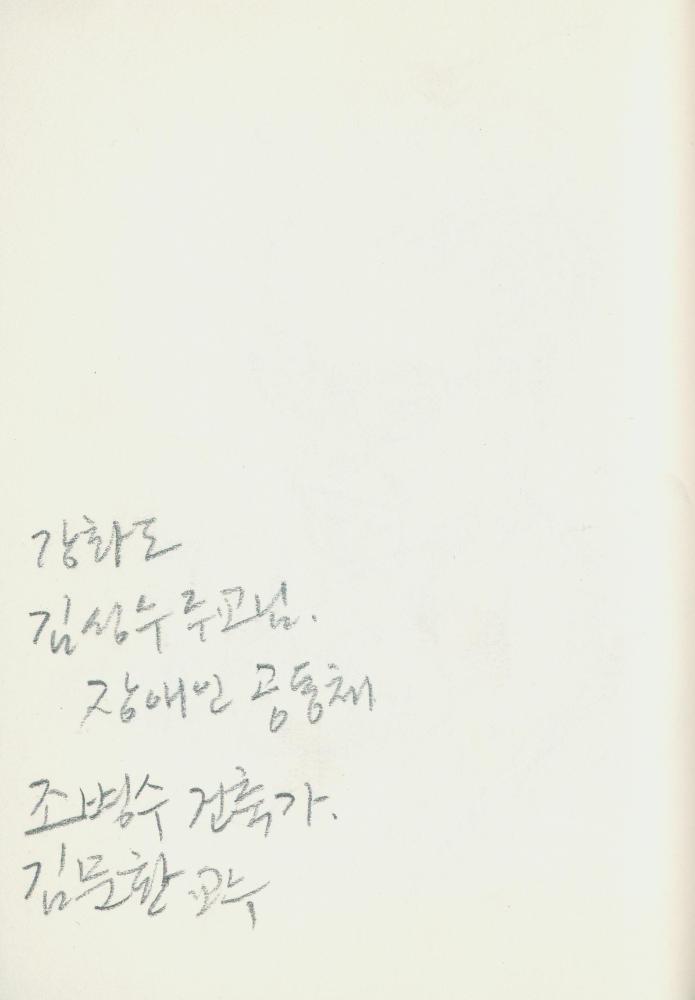 강화도
김성수 주교님.
장애인 공동체
조병수 건축가.
김문환 교수